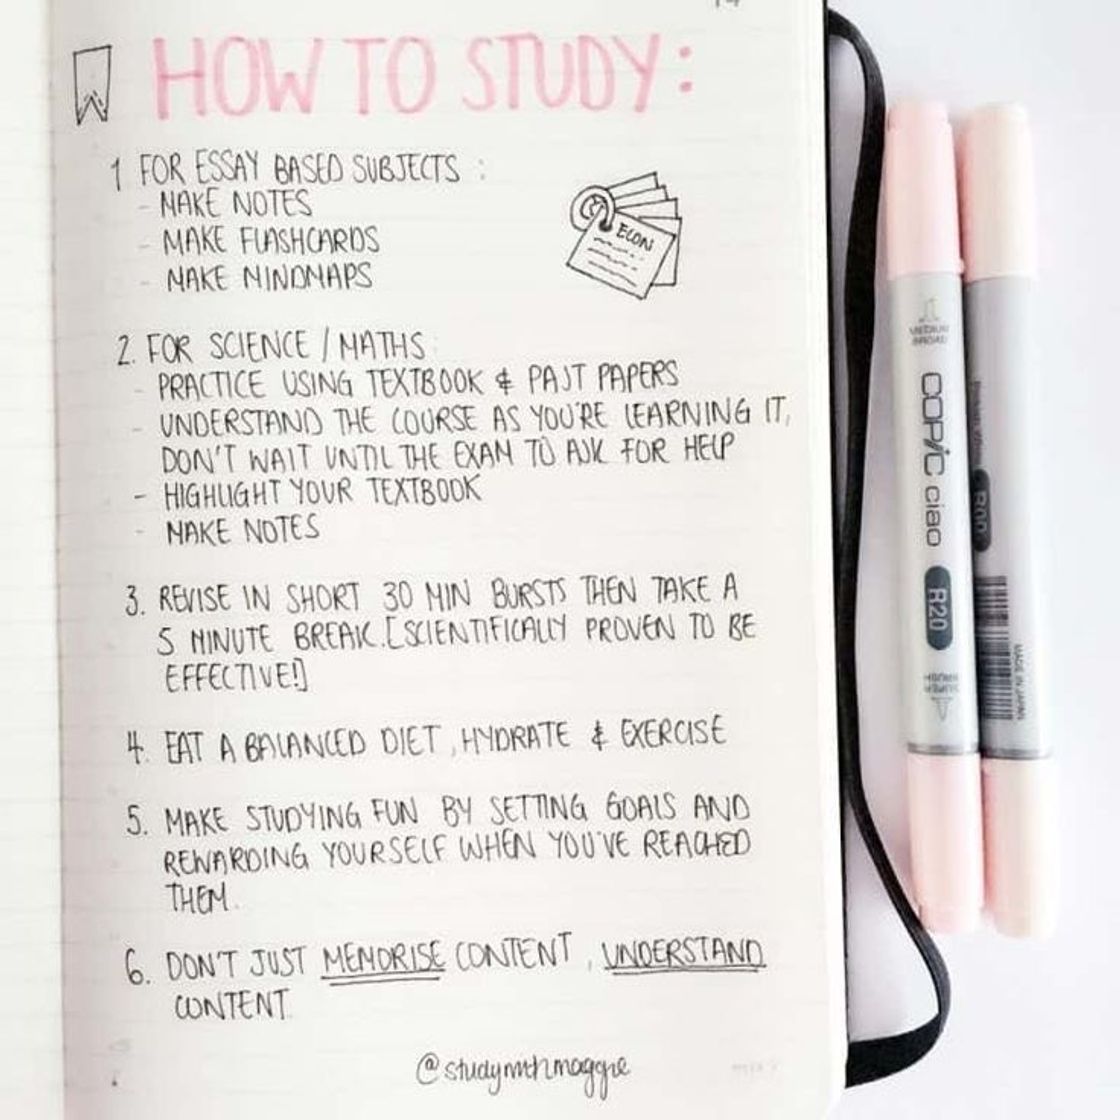 HOW TO STUDY:
1 FOR ESSAY BASED SUBJECTS :
- MAKE NOTES
- MAKE FLASHCARDS
- MAKE MINDMAPS
ECON
2. FOR SCIENCE / MATHS:
- PRACTICE USING TEXTBOOK & PAST PAPERS
- UNDERSTAND THE COURSE AS YOU'RE LEARNING IT,
DON'T WAIT UNTIL THE EXAM TO ASK FOR HELP
- HIGHLIGHT YOUR TEXTBOOK
- MAKE NOTES
3. REVISE IN SHORT 30 MIN BURSTS THEN TAKE A
5 MINUTE BREAK.[SCIENTIFICALLY PROVEN TO BE
EFFECTIVE!]
4. EAT A BALANCED DIET, HYDRATE & EXERCISE
5. MAKE STUDYING FUN BY SETTING GOALS AND
REWARDING YOURSELF WHEN YOU'VE REACHED
THEM.
6. DON'T JUST MEMORISE CONTENT, UNDERSTAND
CONTENT.
@studywithmaggie
MEDIUM
BROAD
COPIC ciao
R20
SUPER
BRUSH
R00
MADE IN JAPAN